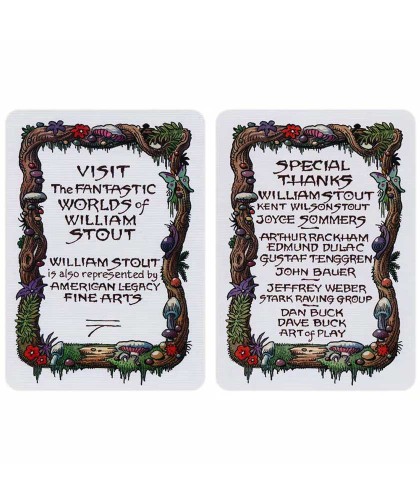 VISIT
The FANTASTIC
WORLDS of
WILLIAM
STOUT
WILLIAM STOUT
is also represented by
AMERICAN LEGACY
FINE ARTS
SPECIAL
THANKS
WILLIAM STOUT
KENT WILSON STOUT
JOYCE SOMMERS
ARTHUR RACKHAM
EDMUND DULAC
GUSTAF TENGGREN
JOHN BAUER
JEFFREY WEBER
STARK RAVING GROUP
DAN BUCK
DAVE BUCK
ART of PLAY